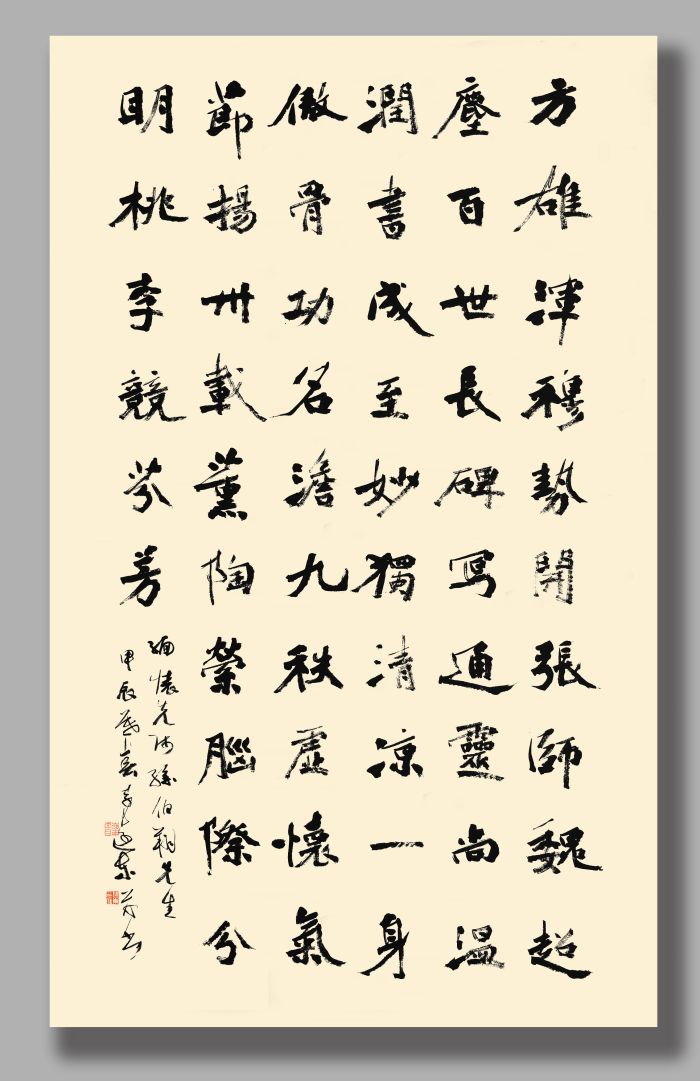 方雄渾穆勢開張師魏超
塵百世長碑寫通靈尚温
潤書成至妙獨清凉一身
傲骨功名澹九秩虛懷氣
節揚卅載薰陶縈腦際兮
明桃李競芬芳
緬懷先師孫伯翔先生
甲辰